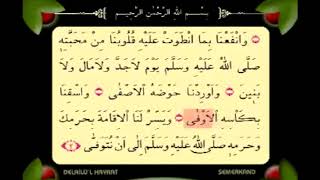 بِسْمِ اللهِ الرَّحْمٰنِ الرَّحِيمِ
وَانْفَعْنَا بِمَا انْطَوَتْ عَلَيْهِ قُلُوبُنَا مِنْ مَحَبَّتِهِ
صَلَّى اللهُ عَلَيْهِ وَسَلَّمَ يَوْمَ لَاجَدَّ وَلَامَالَ وَلَا
بَنِينَ وَاَوْرِدْنَا حَوْضَهُ الْاَصْفٰى وَاسْقِنَا
بِكَاْسِهِ الْاَوْفٰى وَيَسِّرْ لَنَا الْاِقَامَةَ بِحَرَمِكَ
وَحَرَمِهِ صَلَّى اللهُ عَلَيْهِ وَسَلَّمَ اِلٰى اَنْ نُتَوَفّٰى
DELAİLÜ'L HAYRAT
SEMERKAND